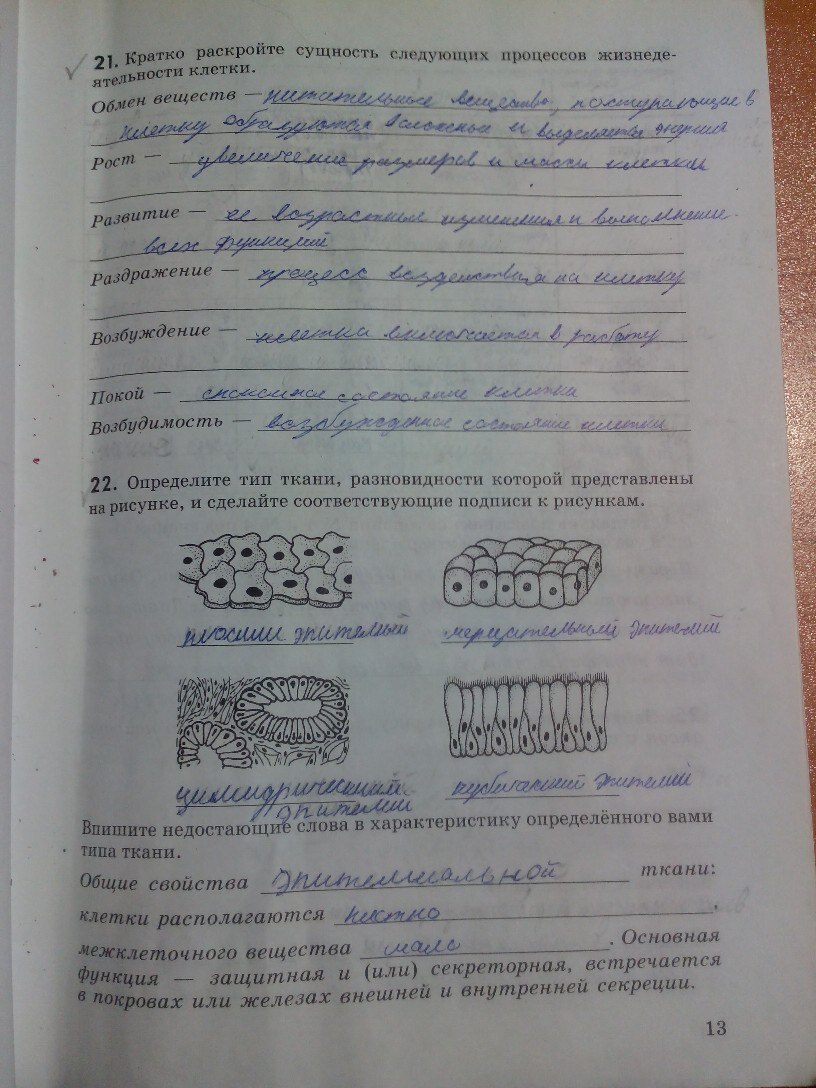 21. Кратко раскройте сущность следующих процессов жизнеде-
ятельности клетки.
Обмен веществ — питательные вещества, поступающие в
клетку образуются в сложные и выделяется энергия
Рост — увеличение размеров и массы клетки
Развитие — ее возрастные изменения и выполнение
всех функций
Раздражение — процесс воздействия на клетку
Возбуждение — клетка включается в работу
Покой — спокойное состояние клетки
Возбудимость — возбужденное состояние клетки
22. Определите тип ткани, разновидности которой представлены
на рисунке, и сделайте соответствующие подписи к рисункам.
плоский эпителий
мерцательный эпителий
цилиндрический
эпителий
кубический эпителий
Впишите недостающие слова в характеристику определённого вами
типа ткани.
Общие свойства эпителиальной ткани:
клетки располагаются плотно,
межклеточного вещества мало. Основная
функция — защитная и (или) секреторная, встречается
в покровах или железах внешней и внутренней секреции.
13